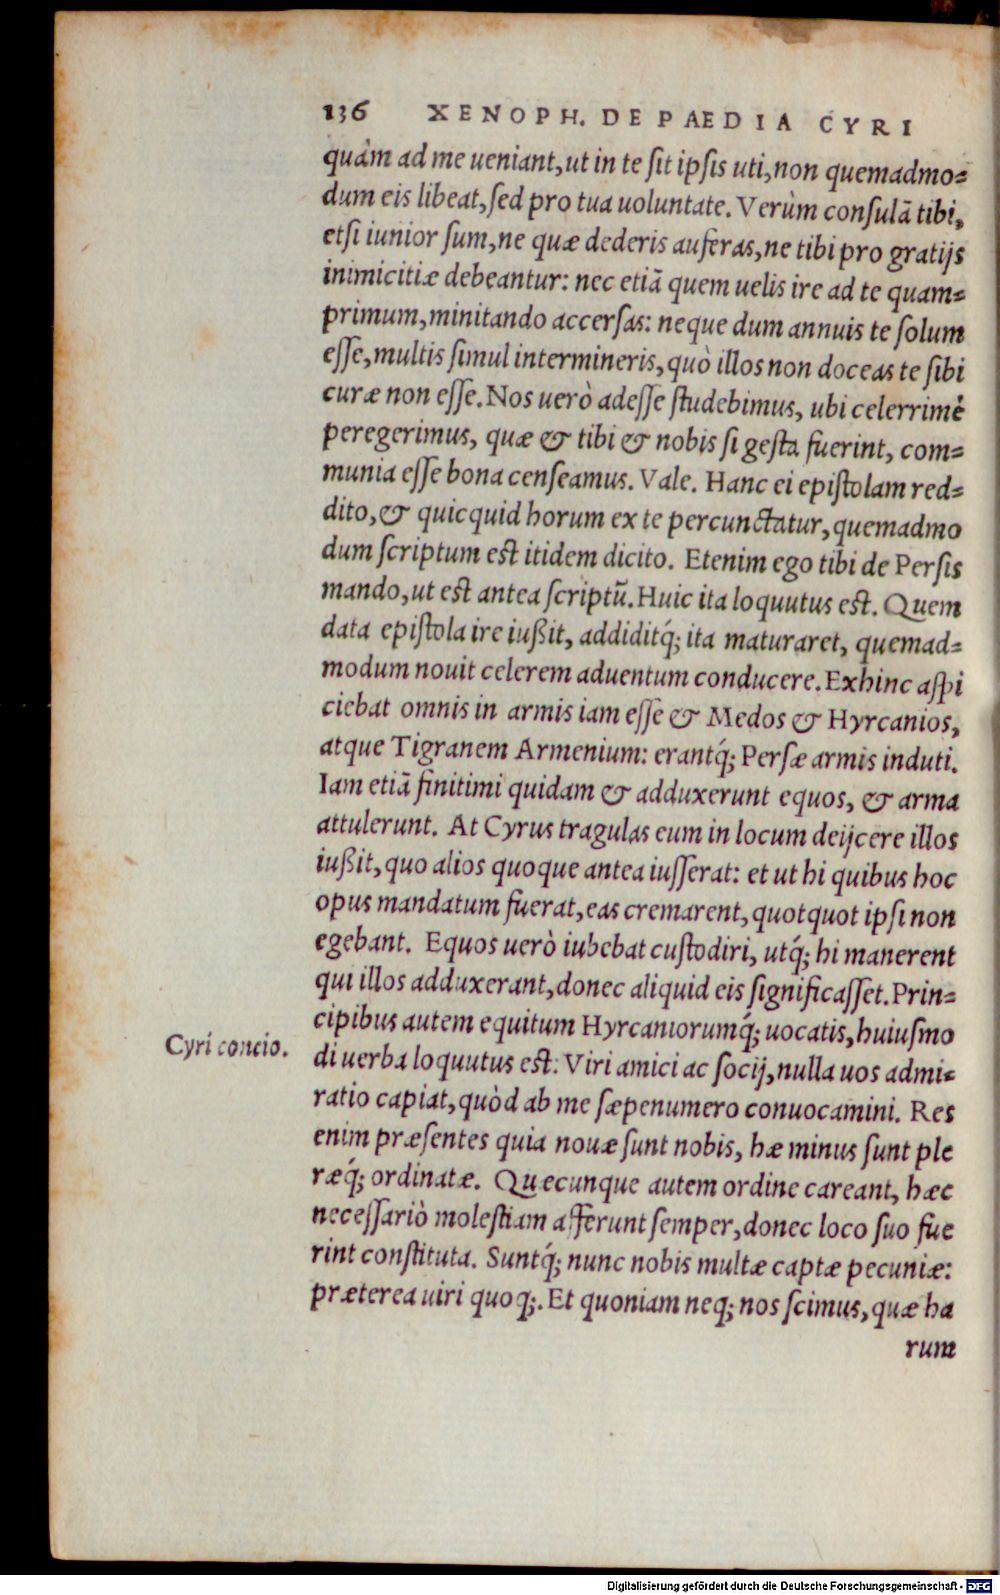 136 XENOPH. DE PAEDIA CYRI
quàm ad me ueniant, ut in te sit ipsis uti, non quemadmo=
dum eis libeat, sed pro tua uoluntate. Verùm consulã tibi,
etsi iunior sum, ne quæ dederis auferas, ne tibi pro gratijs
inimicitiæ debeantur: nec etiã quem uelis ire ad te quam=
primum, minitando accersas: neque dum annuis te solum
esse, multis simul intermineris, quò illos non doceas te sibi
curæ non esse. Nos uerò adesse studebimus, ubi celerrimè
peregerimus, quæ & tibi & nobis si gesta fuerint, com=
munia esse bona censeamus. Vale. Hanc ei epistolam red=
dito, & quicquid horum ex te percunctatur, quemadmo
dum scriptum est itidem dicito. Etenim ego tibi de Persis
mando, ut est antea scriptũ. Huic ita loquutus est. Quem
data epistola ire iußit, addiditq́; ita maturaret, quemad=
modum nouit celerem aduentum conducere. Exhinc aspi
ciebat omnis in armis iam esse & Medos & Hyrcanios,
atque Tigranem Armenium: erantq́; Persæ armis induti.
Iam etiã finitimi quidam & adduxerunt equos, & arma
attulerunt. At Cyrus tragulas eum in locum deijcere illos
iußit, quo alios quoque antea iusserat: et ut hi quibus hoc
opus mandatum fuerat, eas cremarent, quotquot ipsi non
egebant. Equos uerò iubebat custodiri, utq́; hi manerent
qui illos adduxerant, donec aliquid eis significasset. Prin=
cipibus autem equitum Hyrcaniorumq́; uocatis, huiusmo
Cyri concio.
di uerba loquutus est: Viri amici ac socij, nulla uos admi=
ratio capiat, quòd ab me sæpenumero conuocamini. Res
enim præsentes quia nouæ sunt nobis, hæ minus sunt ple
ræq́; ordinatæ. Quæcunque autem ordine careant, hæc
necessariò molestiam afferunt semper, donec loco suo fue
rint constituta. Suntq́; nunc nobis multæ captæ pecuniæ:
præterea uiri quoq;. Et quoniam neq; nos scimus, quæ ha
rum
Digitalisierung gefördert durch die Deutsche Forschungsgemeinschaft - DFG